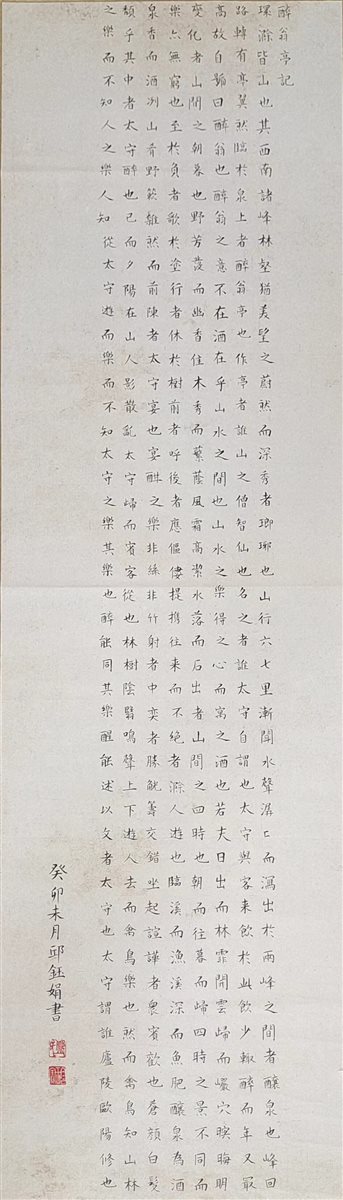 醉翁亭記
環滁皆山也其西南諸峰林壑猶美望之蔚然而深秀者瑯琊也山行六七里漸聞水聲潺〻而瀉出於兩峰之間者釀泉也峰回
路轉有亭翼然臨於泉上者醉翁亭也作亭者誰山之僧智仙也名之者誰太守自謂也太守與客來飲於此飲少輒醉而年又最
高故自號曰醉翁也醉翁之意不在酒在乎山水之間也山水之樂得之心而寓之酒也若夫日出而林霏開雲歸而巖穴暝晦明
變化者山間之朝暮也野芳發而幽香佳木秀而蘩蔭風霜高潔水落而石出者山間之四時也朝而往暮而歸四時之景不同而
樂亦無窮也至於負者歌於塗行者休於樹前者呼後者應傴僂提携往来而不絶者滁人遊也臨溪而漁溪深而魚肥釀泉為酒
泉香而酒冽山肴野蔌雜然而前陳者太守宴也宴酣之樂非絲非竹射者中奕者勝觥籌交錯坐起諠譁者衆賓歡也蒼顔白髮
頹乎其中者太守醉也已而夕陽在山人影散亂太守歸而賓客從也林樹陰翳鳴聲上下遊人去而禽鳥樂也然而禽鳥知山林
之樂而不知人之樂人知從太守遊而樂而不知太守之樂其樂也醉能同其樂醒能述以文者太守也太守謂誰廬陵歐陽修也
癸卯未月邱鈺娟書